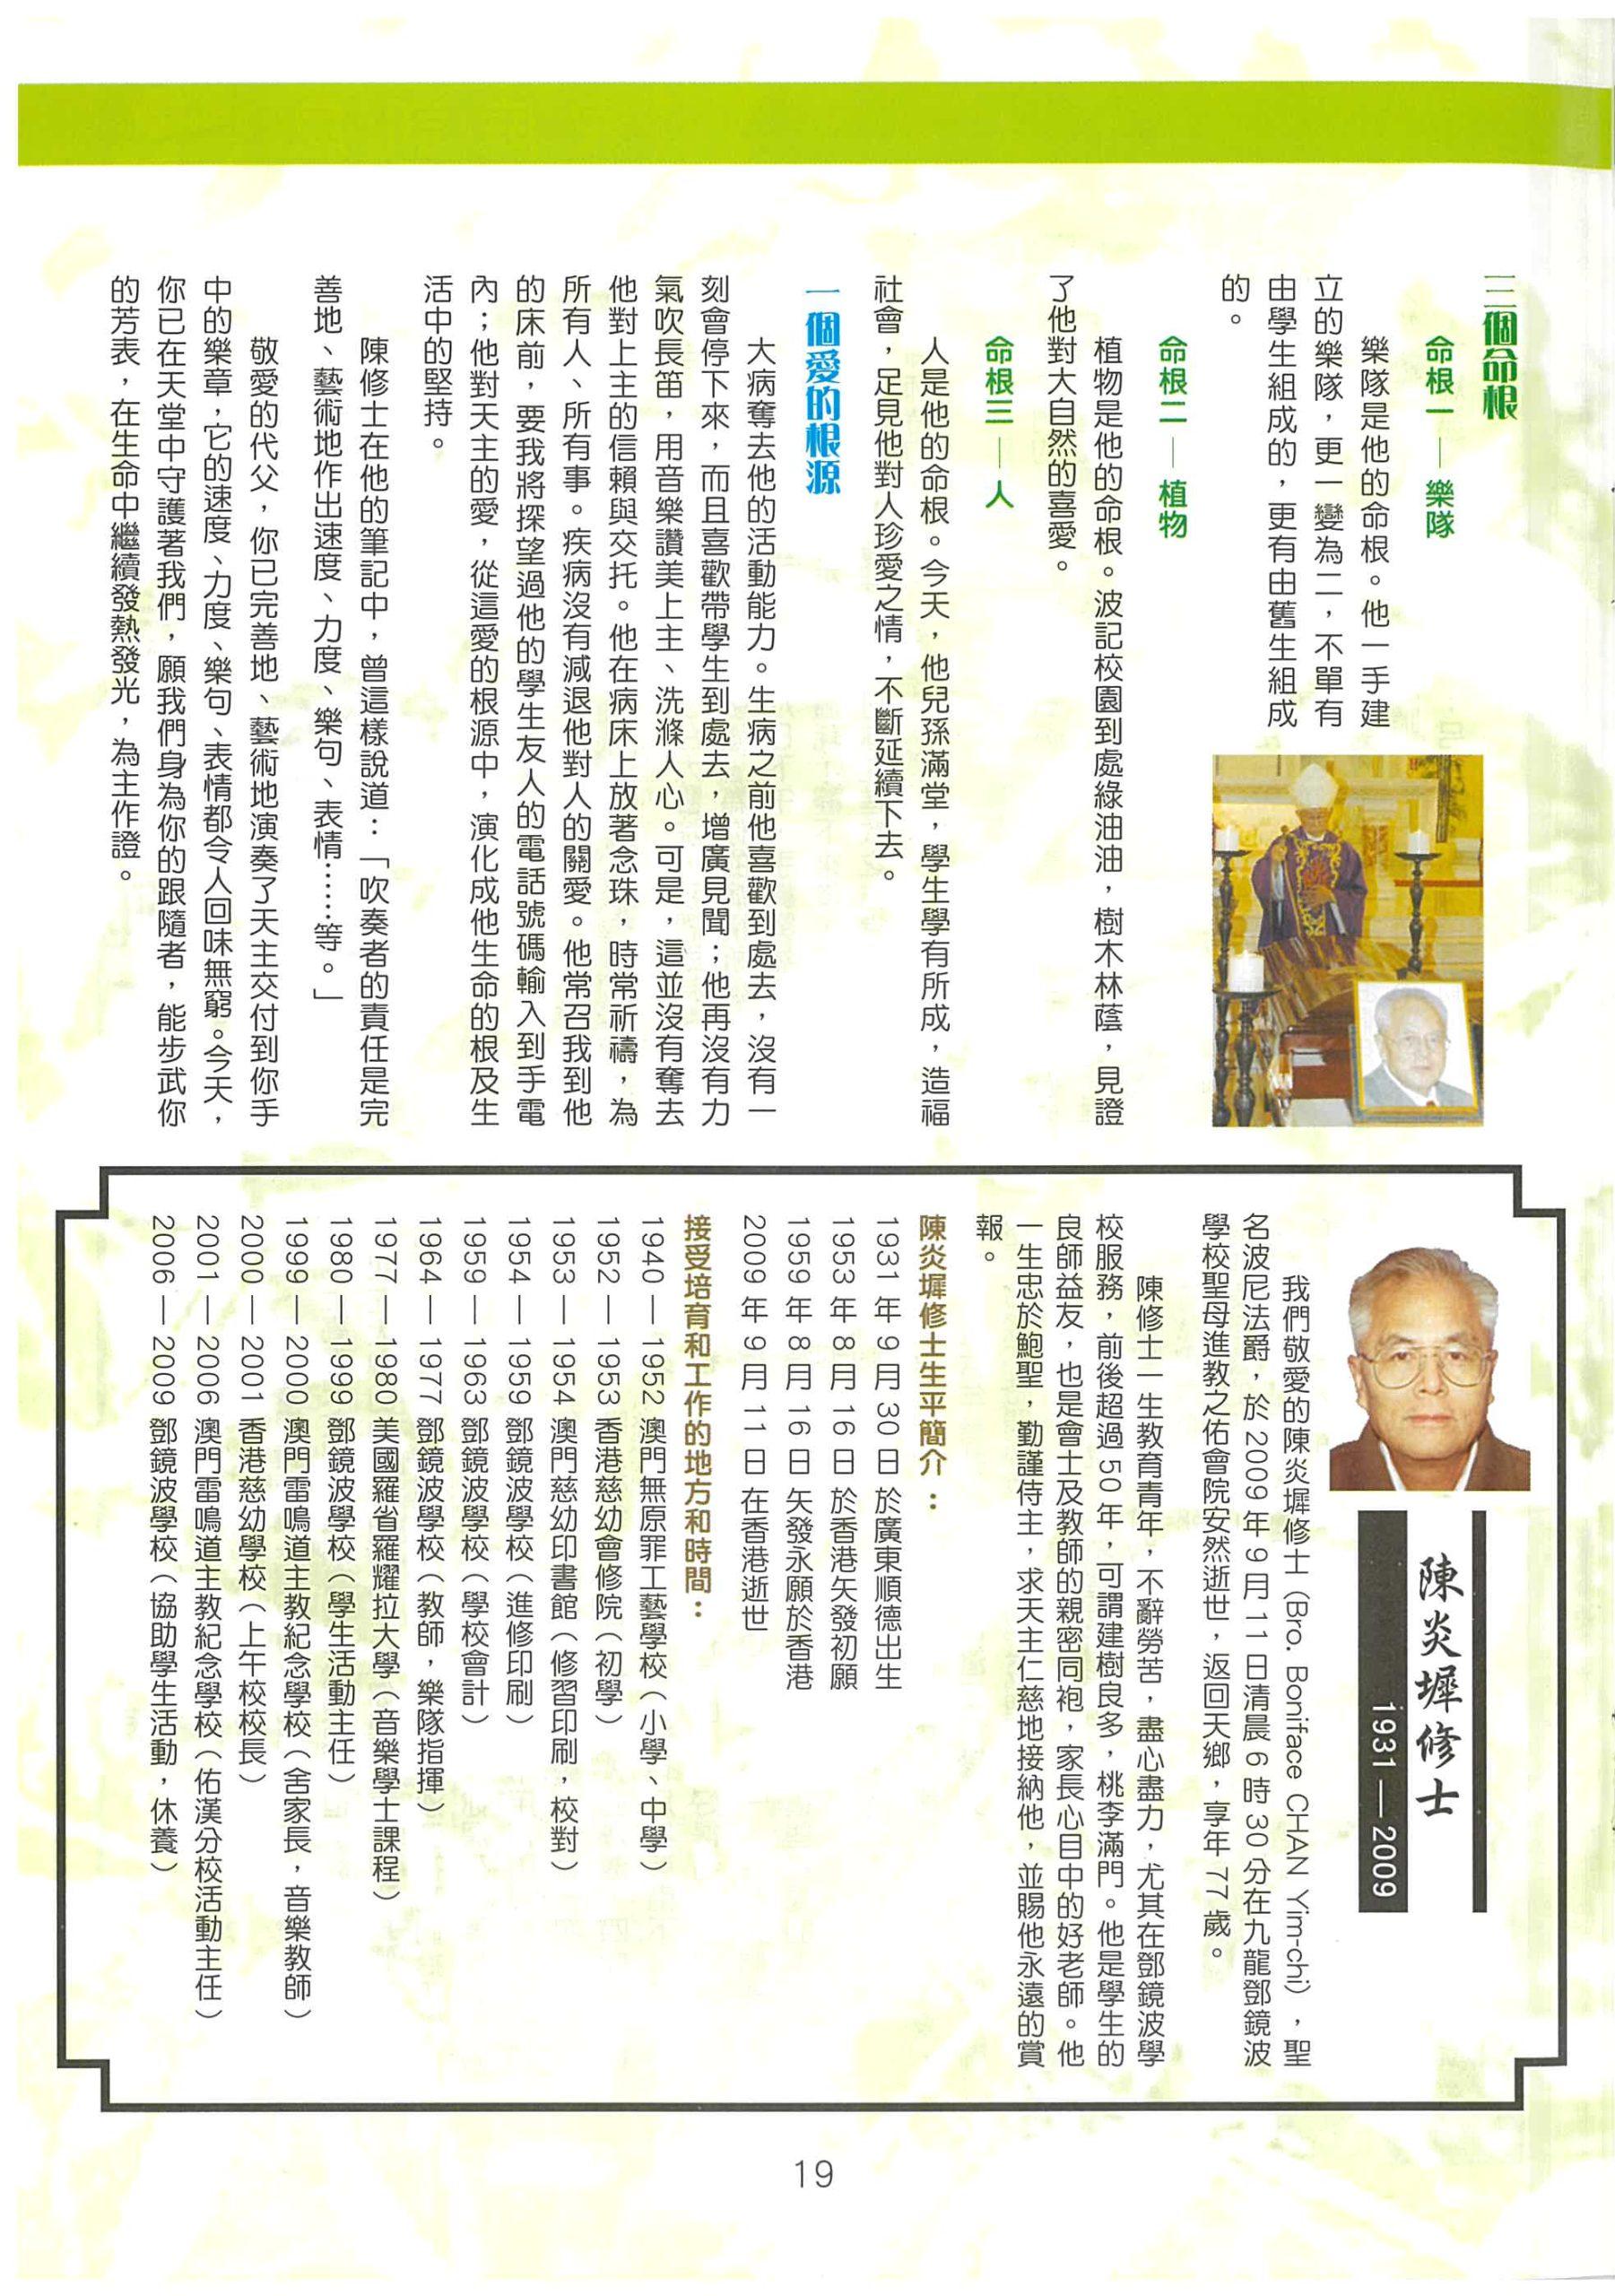 三個命根
命根一 — 樂隊
樂隊是他的命根。他一手建
立的樂隊，更一變為二，不單有
由學生組成的，更有由舊生組成
的。
命根二 — 植物
植物是他的命根。波記校園到處綠油油，樹木林蔭，見證
了他對大自然的喜愛。
命根三 — 人
人是他的命根。今天，他兒孫滿堂，學生學有所成，造福
社會，足見他對人珍愛之情，不斷延續下去。
一個愛的根源
大病奪去他的活動能力。生病之前他喜歡到處去，沒有一
刻會停下來，而且喜歡帶學生到處去，增廣見聞；他再沒有力
氣吹長笛，用音樂讚美上主、洗滌人心。可是，這並沒有奪去
他對上主的信賴與交托。他在病床上放著念珠，時常祈禱，為
所有人、所有事。疾病沒有減退他對人的關愛。他常召我到他
的床前，要我將探望過他的學生友人的電話號碼輸入到手電
內；他對天主的愛，從這愛的根源中，演化成他生命的根及生
活中的堅持。
陳修士在他的筆記中，曾這樣說道：「吹奏者的責任是完
善地、藝術地作出速度、力度、樂句、表情……等。」
敬愛的代父，你已完善地、藝術地演奏了天主交付到你手
中的樂章，它的速度、力度、樂句、表情都令人回味無窮。今天，
你已在天堂中守護著我們，願我們身為你的跟隨者，能步武你
的芳表，在生命中繼續發熱發光，為主作證。
陳炎墀修士
1931 — 2009
我們敬愛的陳炎墀修士（Bro. Boniface CHAN Yim-chi），聖
名波尼法爵，於 2009 年 9 月 11 日清晨 6 時 30 分在九龍鄧鏡波
學校聖母進教之佑會院安然逝世，返回天鄉，享年 77 歲。
陳修士一生教育青年，不辭勞苦，盡心盡力，尤其在鄧鏡波學
校服務，前後超過 50 年，可謂建樹良多，桃李滿門。他是學生的
良師益友，也是會士及教師的親密同袍，家長心目中的好老師。他
一生忠於鮑聖，勤謹侍主，求天主仁慈地接納他，並賜他永遠的賞
報。
陳炎墀修士生平簡介：
1931 年 9 月 30 日 於廣東順德出生
1953 年 8 月 16 日 於香港矢發初願
1959 年 8 月 16 日 矢發永願於香港
2009 年 9 月 11 日 在香港逝世
接受培育和工作的地方和時間：
1940 — 1952 澳門無原罪工藝學校（小學、中學）
1952 — 1953 香港慈幼會修院（初學）
1953 — 1954 澳門慈幼印書館（修習印刷，校對）
1954 — 1959 鄧鏡波學校（進修印刷）
1959 — 1963 鄧鏡波學校（學校會計）
1964 — 1977 鄧鏡波學校（教師，樂隊指揮）
1977 — 1980 美國羅省羅耀拉大學（音樂學士課程）
1980 — 1999 鄧鏡波學校（學生活動主任）
1999 — 2000 澳門雷鳴道主教紀念學校（舍家長，音樂教師）
2000 — 2001 香港慈幼學校（上午校校長）
2001 — 2006 澳門雷鳴道主教紀念學校（佑漢分校活動主任）
2006 — 2009 鄧鏡波學校（協助學生活動，休養）
19